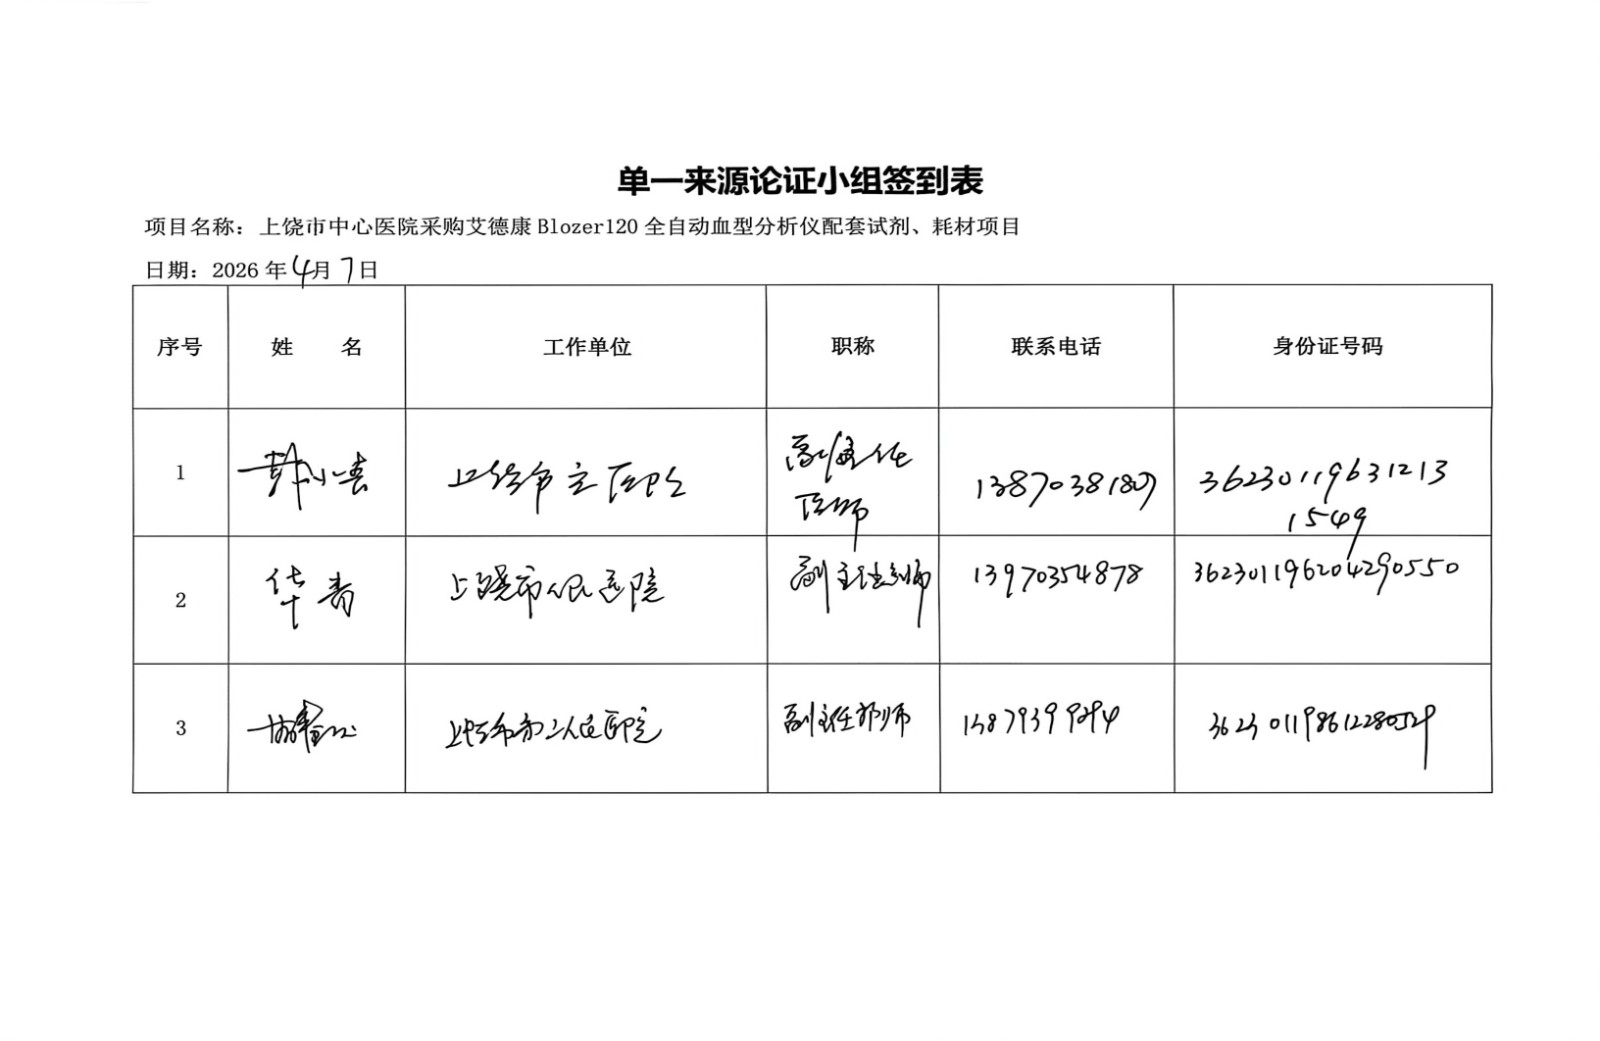 单一来源论证小组签到表
项目名称：上饶市中心医院采购艾德康 Blozer120 全自动血型分析仪配套试剂、耗材项目
日期：2026 年 4 月 7 日
序号 姓 名 工作单位 职称 联系电话 身份证号码
1 小春 上饶市立医院 副主任 13870381807 36230119631213
医师 1549
2 华青 上饶市人民医院 副主任医师 13970354878 362301196204290550
3 上饶市第二人民医院 副主任药师 362301198612280529